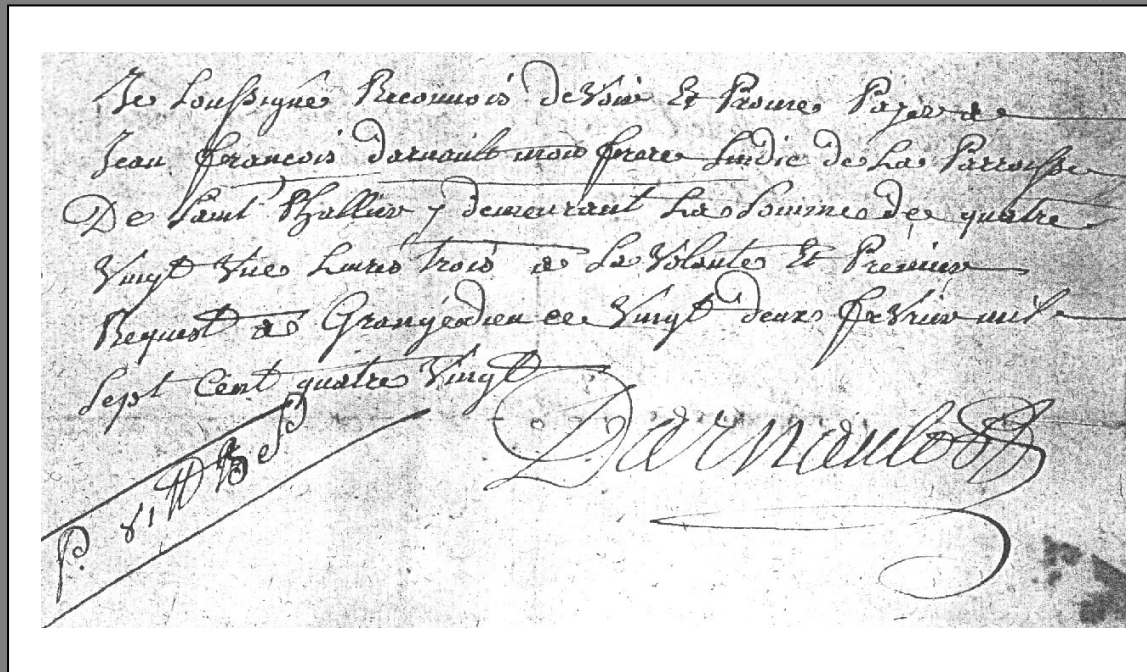 Je Soussigné Reconnois devoir Et Promes Payer a
Jean francois darnault mon frere Sindic de La Parroisse
De Saint Thallier y demeurant La Somme de quatre
Vingt Une Livres trois a La Volonte Et Premier
Requist a Grangéadieu ce Vingt deux fevrier mil
Sept Cent quatre Vingt
Darnault
P. 81 ₶ 3 s